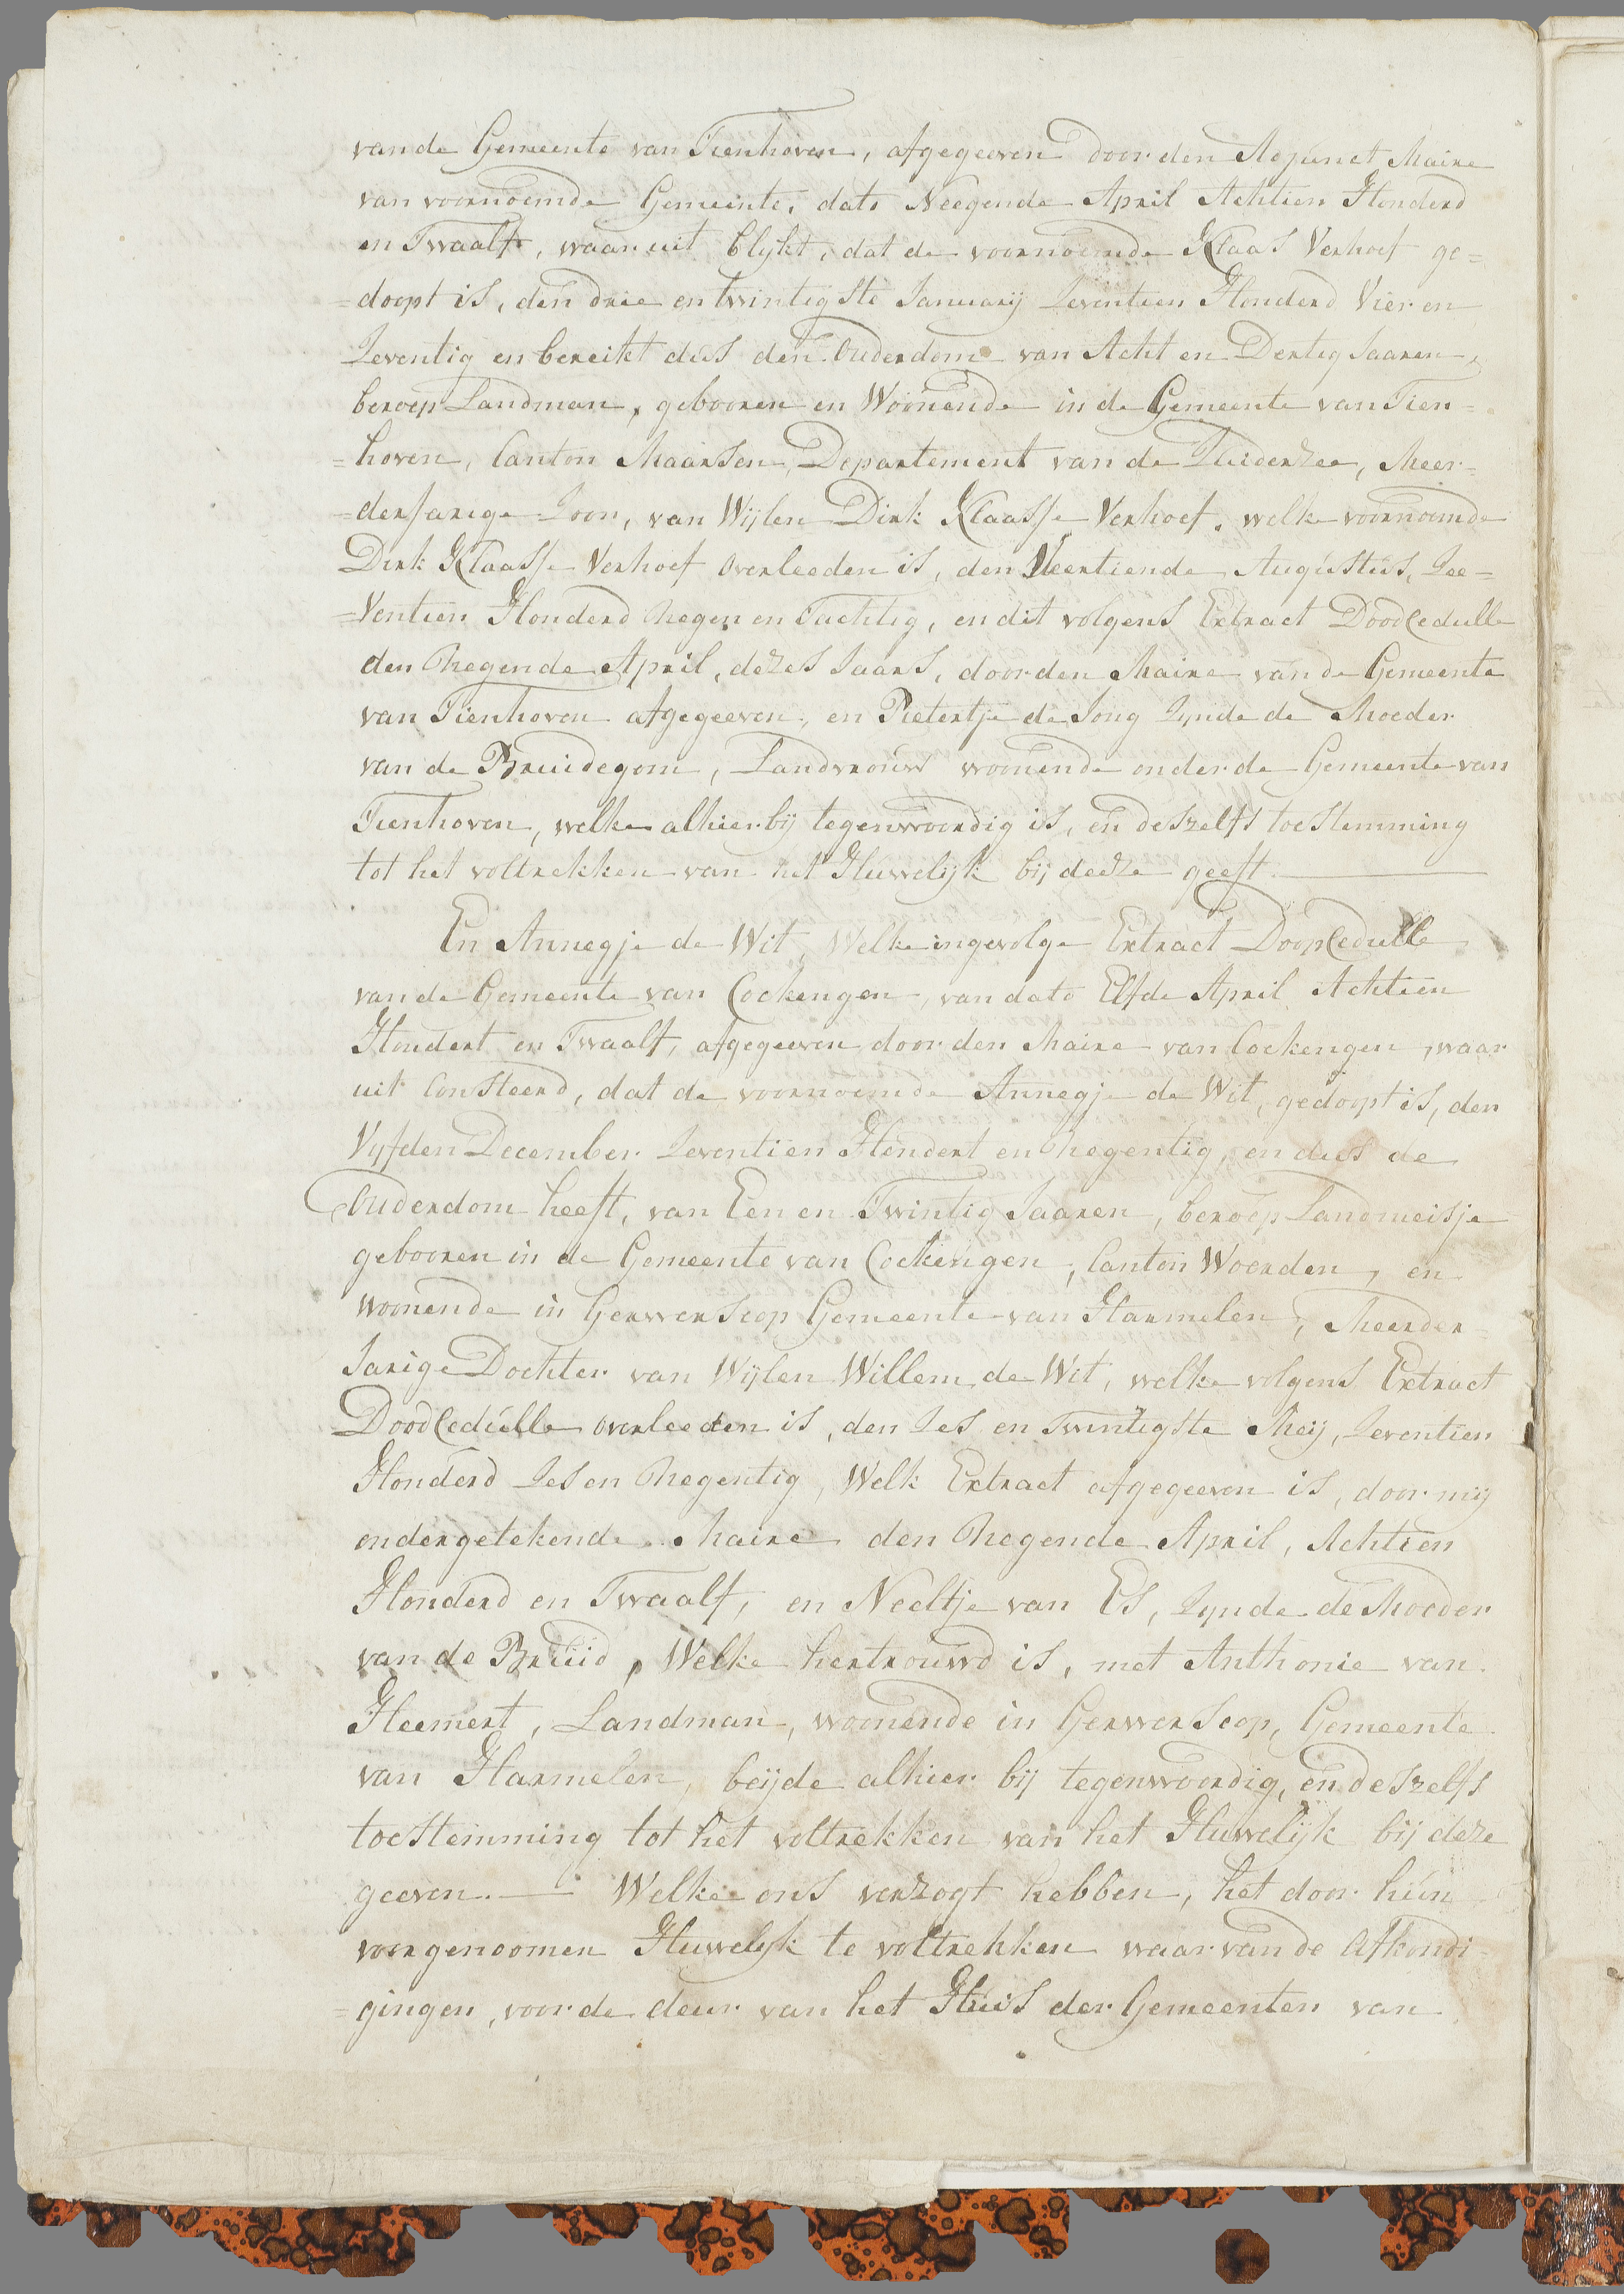 van de Gemeente van Tienhoven, afgegeeven door den Adjunct Maire
van voornoemde Gemeente, dato Neegende April Achtien Honderd
en Twaalf, waar uit blykt, dat de voornoemde Klaas Verhoef ge=
=doopt is, den drie en twintigste Januarij Zeventien Honderd Vier en
Zeventig en bereikt dus den Ouderdom van Acht en Dertig Jaaren,
beroep Landman, gebooren en Woonende in de Gemeente van Tien=
=hoven, Canton Maarsen, Departement van de Zuiderzee, Meer=
=derjarige Zoon, van Wijlen Dirk Klaasse Verhoef, welke voornoemde
Dirk Klaasse Verhoef Overleeden is, den Veertiende Augustus, Zee=
=Ventien Honderd Negen en Tachtig, en dit volgens Extract Doodcedulle
den Negende April, dezes Jaars, door den Maire van de Gemeente
van Tienhoven afgegeeven, en Pietertje de Jong Zynde de Moeder
van de Bruidegom, Landvrouw woonende onder de Gemeente van
Tienhoven, welke alhier bij tegenwoordig is, en deszelfs toestemming
tot het voltrekken van het Huwelijk bij deeze geeft
En Annegje de Wit, Welke ingevolge Extract DoopCedulle
van de Gemeente van Cockengen, van dato Elfde April Achtien
Hondert en Twaalf, afgegeeven door den Maire van Cockengen, waar
uit Consteerd, dat de voornoemde Annegje de Wit, gedoopt is, den
Vyfden December Zeventien Hondert en Negentig, en dus de
Ouderdom heeft, van Een en Twintig Jaaren, beroep Landmeisje
gebooren in de Gemeente van Cockengen, Canton Woerden, en
woonende in Gerwerscop Gemeente van Harmelen, Meerder=
Jarige Dochter van Wijlen Willem de Wit, welke volgens Extract
DoodCedulle overleeden is, den Zes en Twintigste Meij, Zeventien
Honderd Zes en Negentig, Welk Extract afgegeeven is, door mij
ondergetekende Maire den Negende April, Achtien
Honderd en Twaalf, en Neeltje van Es, Zynde de Moeder
van de Bruid, Welke hertrouwd is, met Anthonie van
Heemert, Landman, woonende in Gerwerscop, Gemeente
van Harmelen, beijde alhier bij tegenwoordig, en deszelfs
toestemming tot het voltrekken van het Huwelijk bij deze
geeven. Welke ons verzogt hebben, het door hun
voorgenoomen Huwelyk te voltrekken waar van de Afkondi=
=gingen, voor de deur van het Huis der Gemeenten van